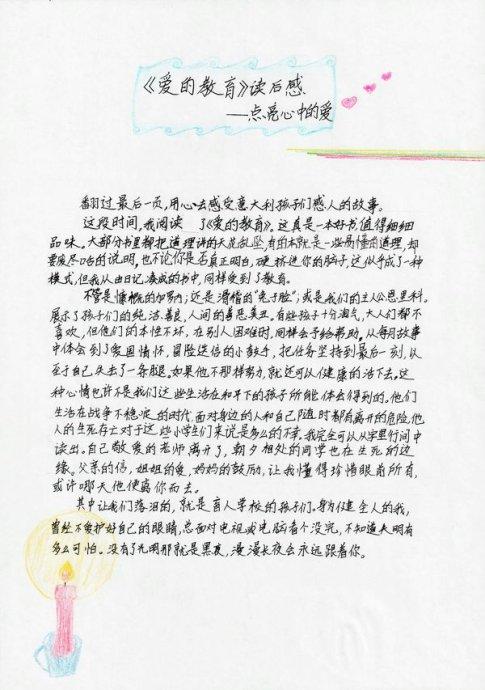 《爱的教育》读后感
——点亮心中的爱
翻过最后一页,用心去感受意大利孩子们感人的故事。
这段时间,我阅读 了《爱的教育》。这真是一本好书,值得细细
品味。大部分书里都把道理讲的天花乱坠,有的本就是一些易懂的道理,却
要废尽口舌的说明,也不论你是否真正明白,硬挤进你的脑子,这似乎成了一种
模式,但我从由日记凑成的书中,同样受到了教育。
不管是慷慨的加罗纳;还是滑稽的“兔子脸”;或是我们的主人公恩里科。
展示了孩子们的纯洁、善良,人间的善恶美丑。有些孩子十分淘气,大人们都不
喜欢,但他们的本性不坏,在别人困难时,同样会予给帮助。从每月故事
中体会到了爱国情怀,冒险送信的小鼓手,把任务坚持到最后一刻,以
至于自己失去了一条腿。如果他不那样努力,就还可以健康的活下去。这
种心情也许不是我们这些生活在和平下的孩子所能体会得到的。他们
生活在战争不稳定的时代,面对身边的人和自己随时都有离开的危险,他
人的生死存亡对于这些小学生们来说是多么的不幸。我完全可以从字里行间中
读出。自己敬爱的老师离开了,朝夕相处的同学也在生死的边
缘,父亲的信,姐姐的爱,妈妈的鼓励,让我懂得珍惜眼前所有,
或许哪天他便离你而去。
其中让我们落泪的,就是盲人学校的孩子们。身为健全人的我,
曾经不爱护好自己的眼睛,总面对电视或电脑看个没完,不知道失明有
多么可怕。没有了光明那就是黑夜,漫漫长夜会永远跟着你。